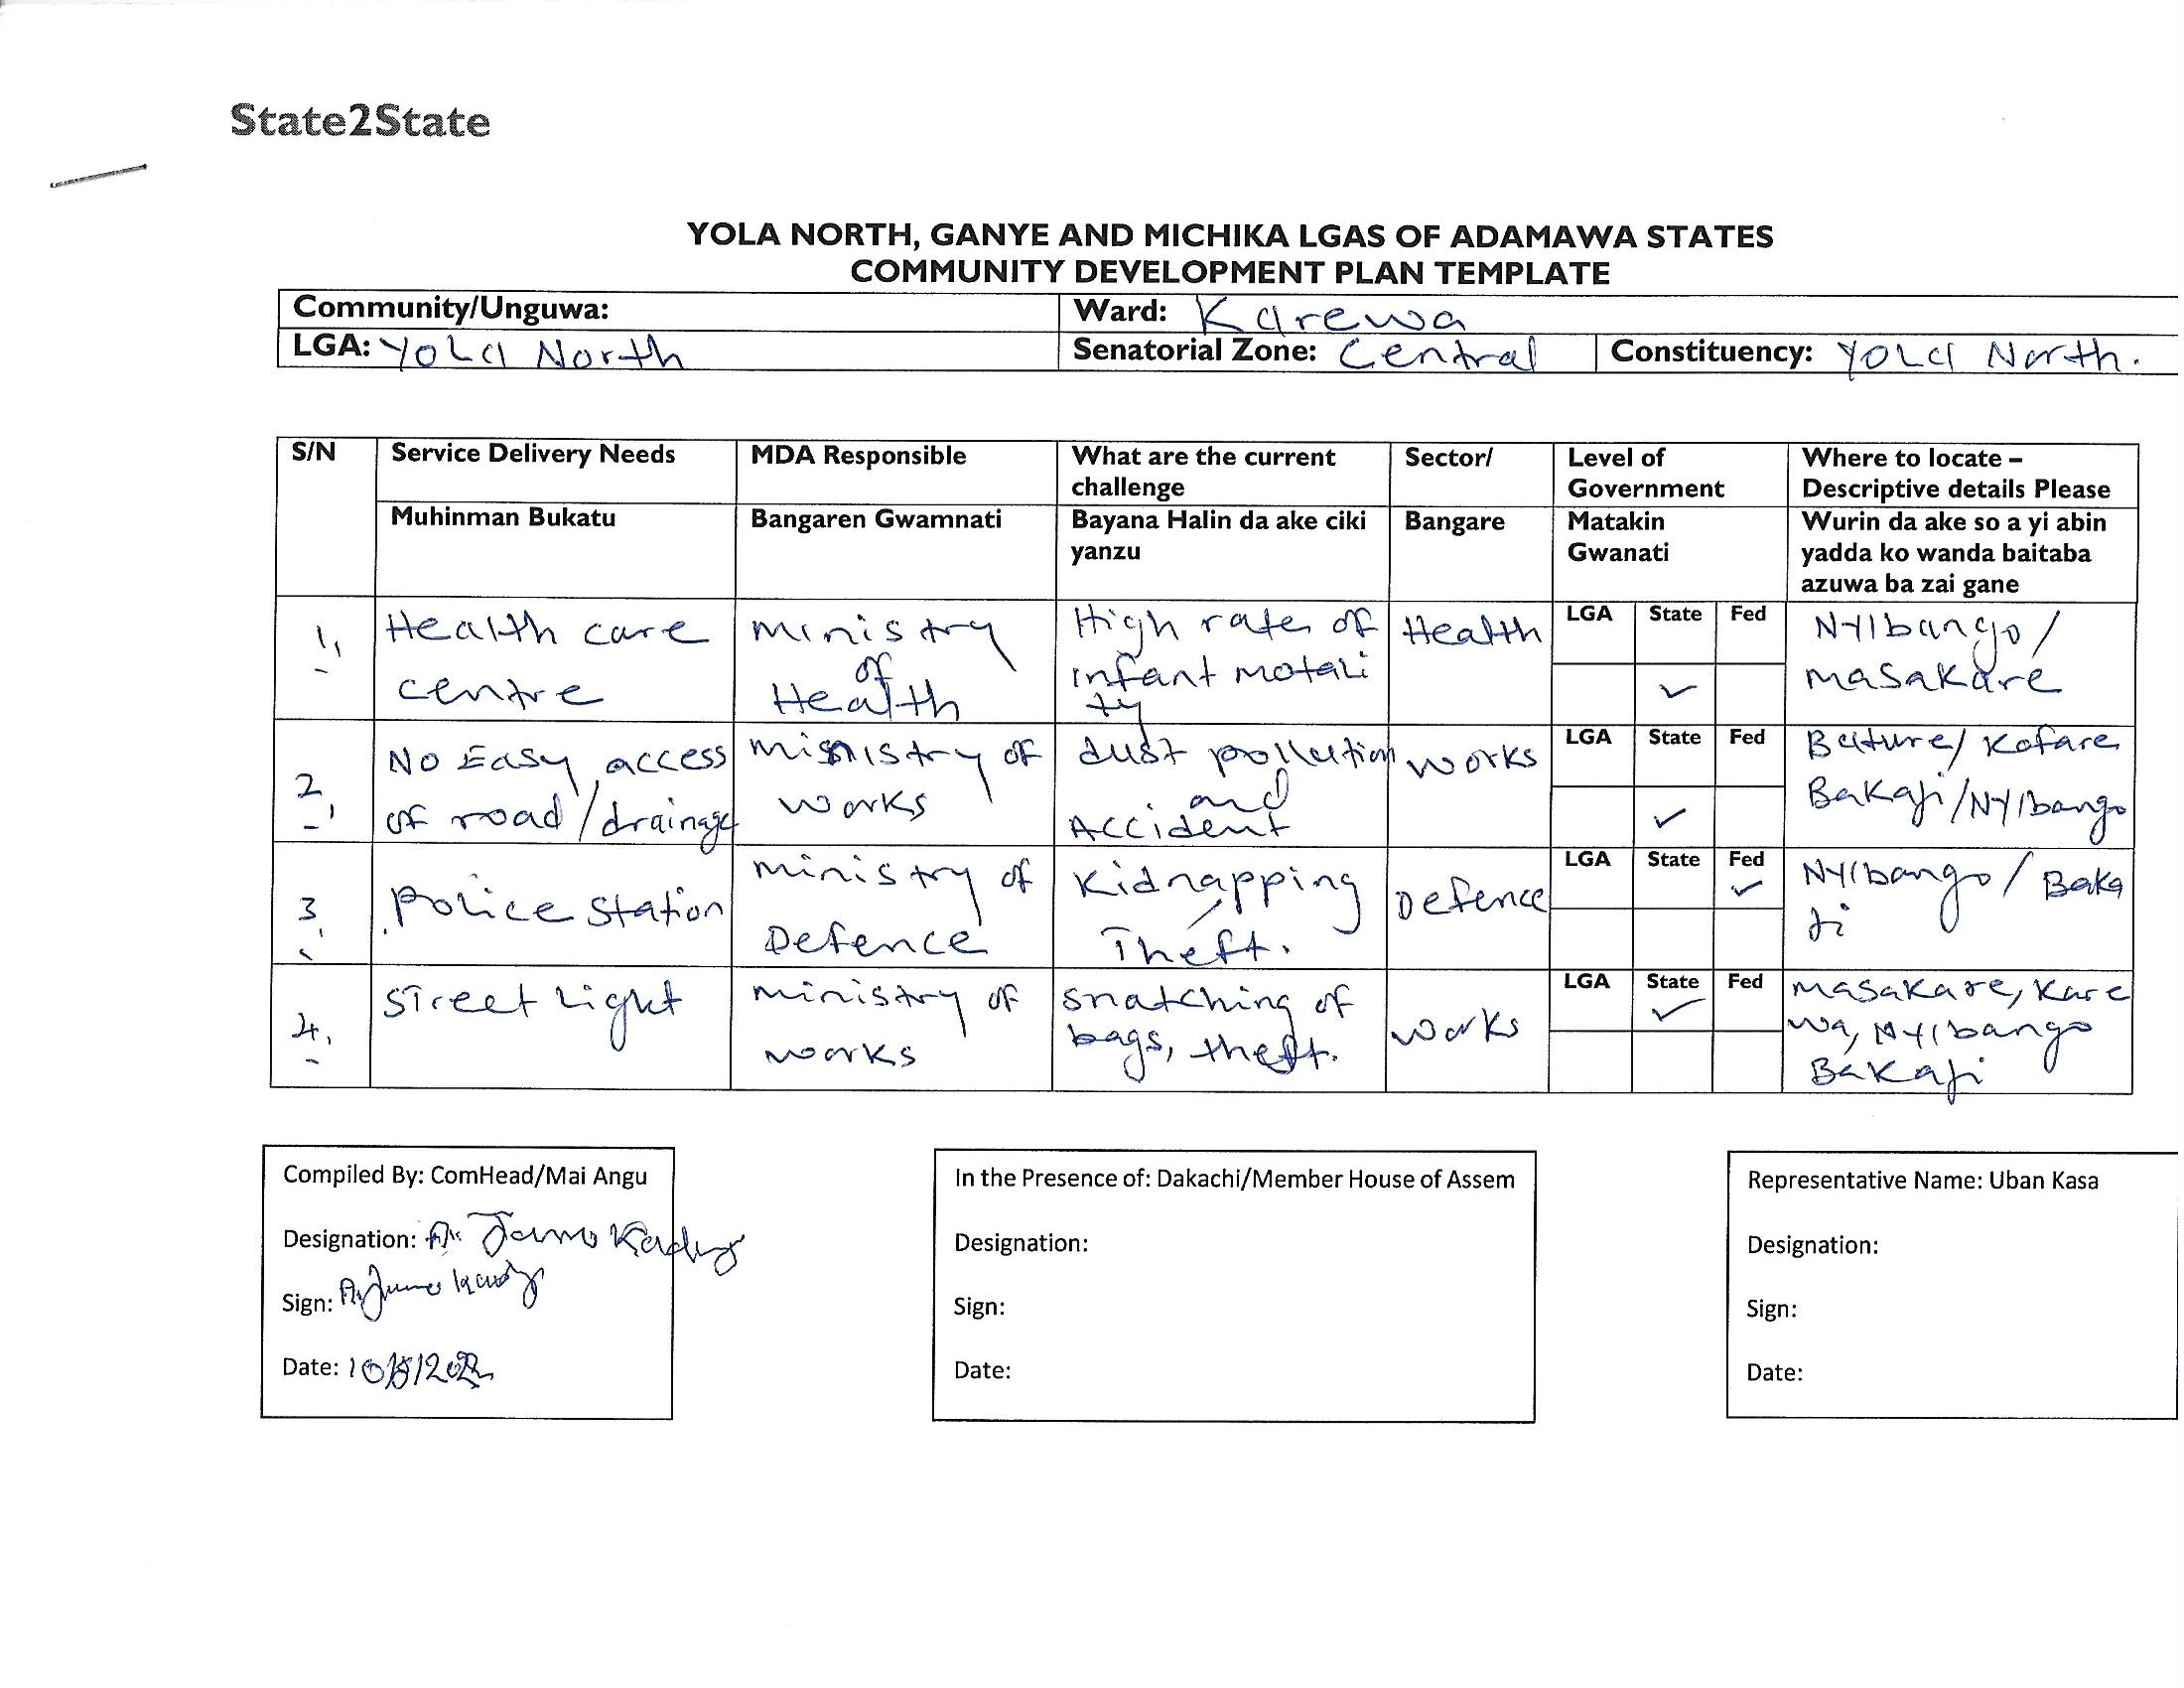 State2State
YOLA NORTH, GANYE AND MICHIKA LGAS OF ADAMAWA STATES
COMMUNITY DEVELOPMENT PLAN TEMPLATE
Community/Unguwa: Ward: Karewa
LGA: Yola North Senatorial Zone: Central Constituency: Yola North.
S/N Service Delivery Needs MDA Responsible What are the current challenge Sector/ Level of Government Where to locate – Descriptive details Please
Muhinman Bukatu Bangaren Gwamnati Bayana Halin da ake ciki yanzu Bangare Matakin Gwanati Wurin da ake so a yi abin yadda ko wanda baitaba azuwa ba zai gane
1. Health care centre ministry of Health High rate of infant motality Health LGA State ✓ Fed NYIbango/ masakare
2. No Easy access of road/drainage ministry of works dust pollution and Accident works LGA State ✓ Fed Bature/ Kofare Bakaji/NYIbango
3. Police Station ministry of Defence Kidnapping Theft. Defence LGA State Fed ✓ NYIbango/ Bakaji
4. Street Light ministry of works snatching of bags, theft. works LGA State ✓ Fed masakare, Karewa, NYIbango Bakaji
Compiled By: ComHead/Mai Angu
Designation:
Sign:
Date:
In the Presence of: Dakachi/Member House of Assem
Designation:
Sign:
Date:
Representative Name: Uban Kasa
Designation:
Sign:
Date: